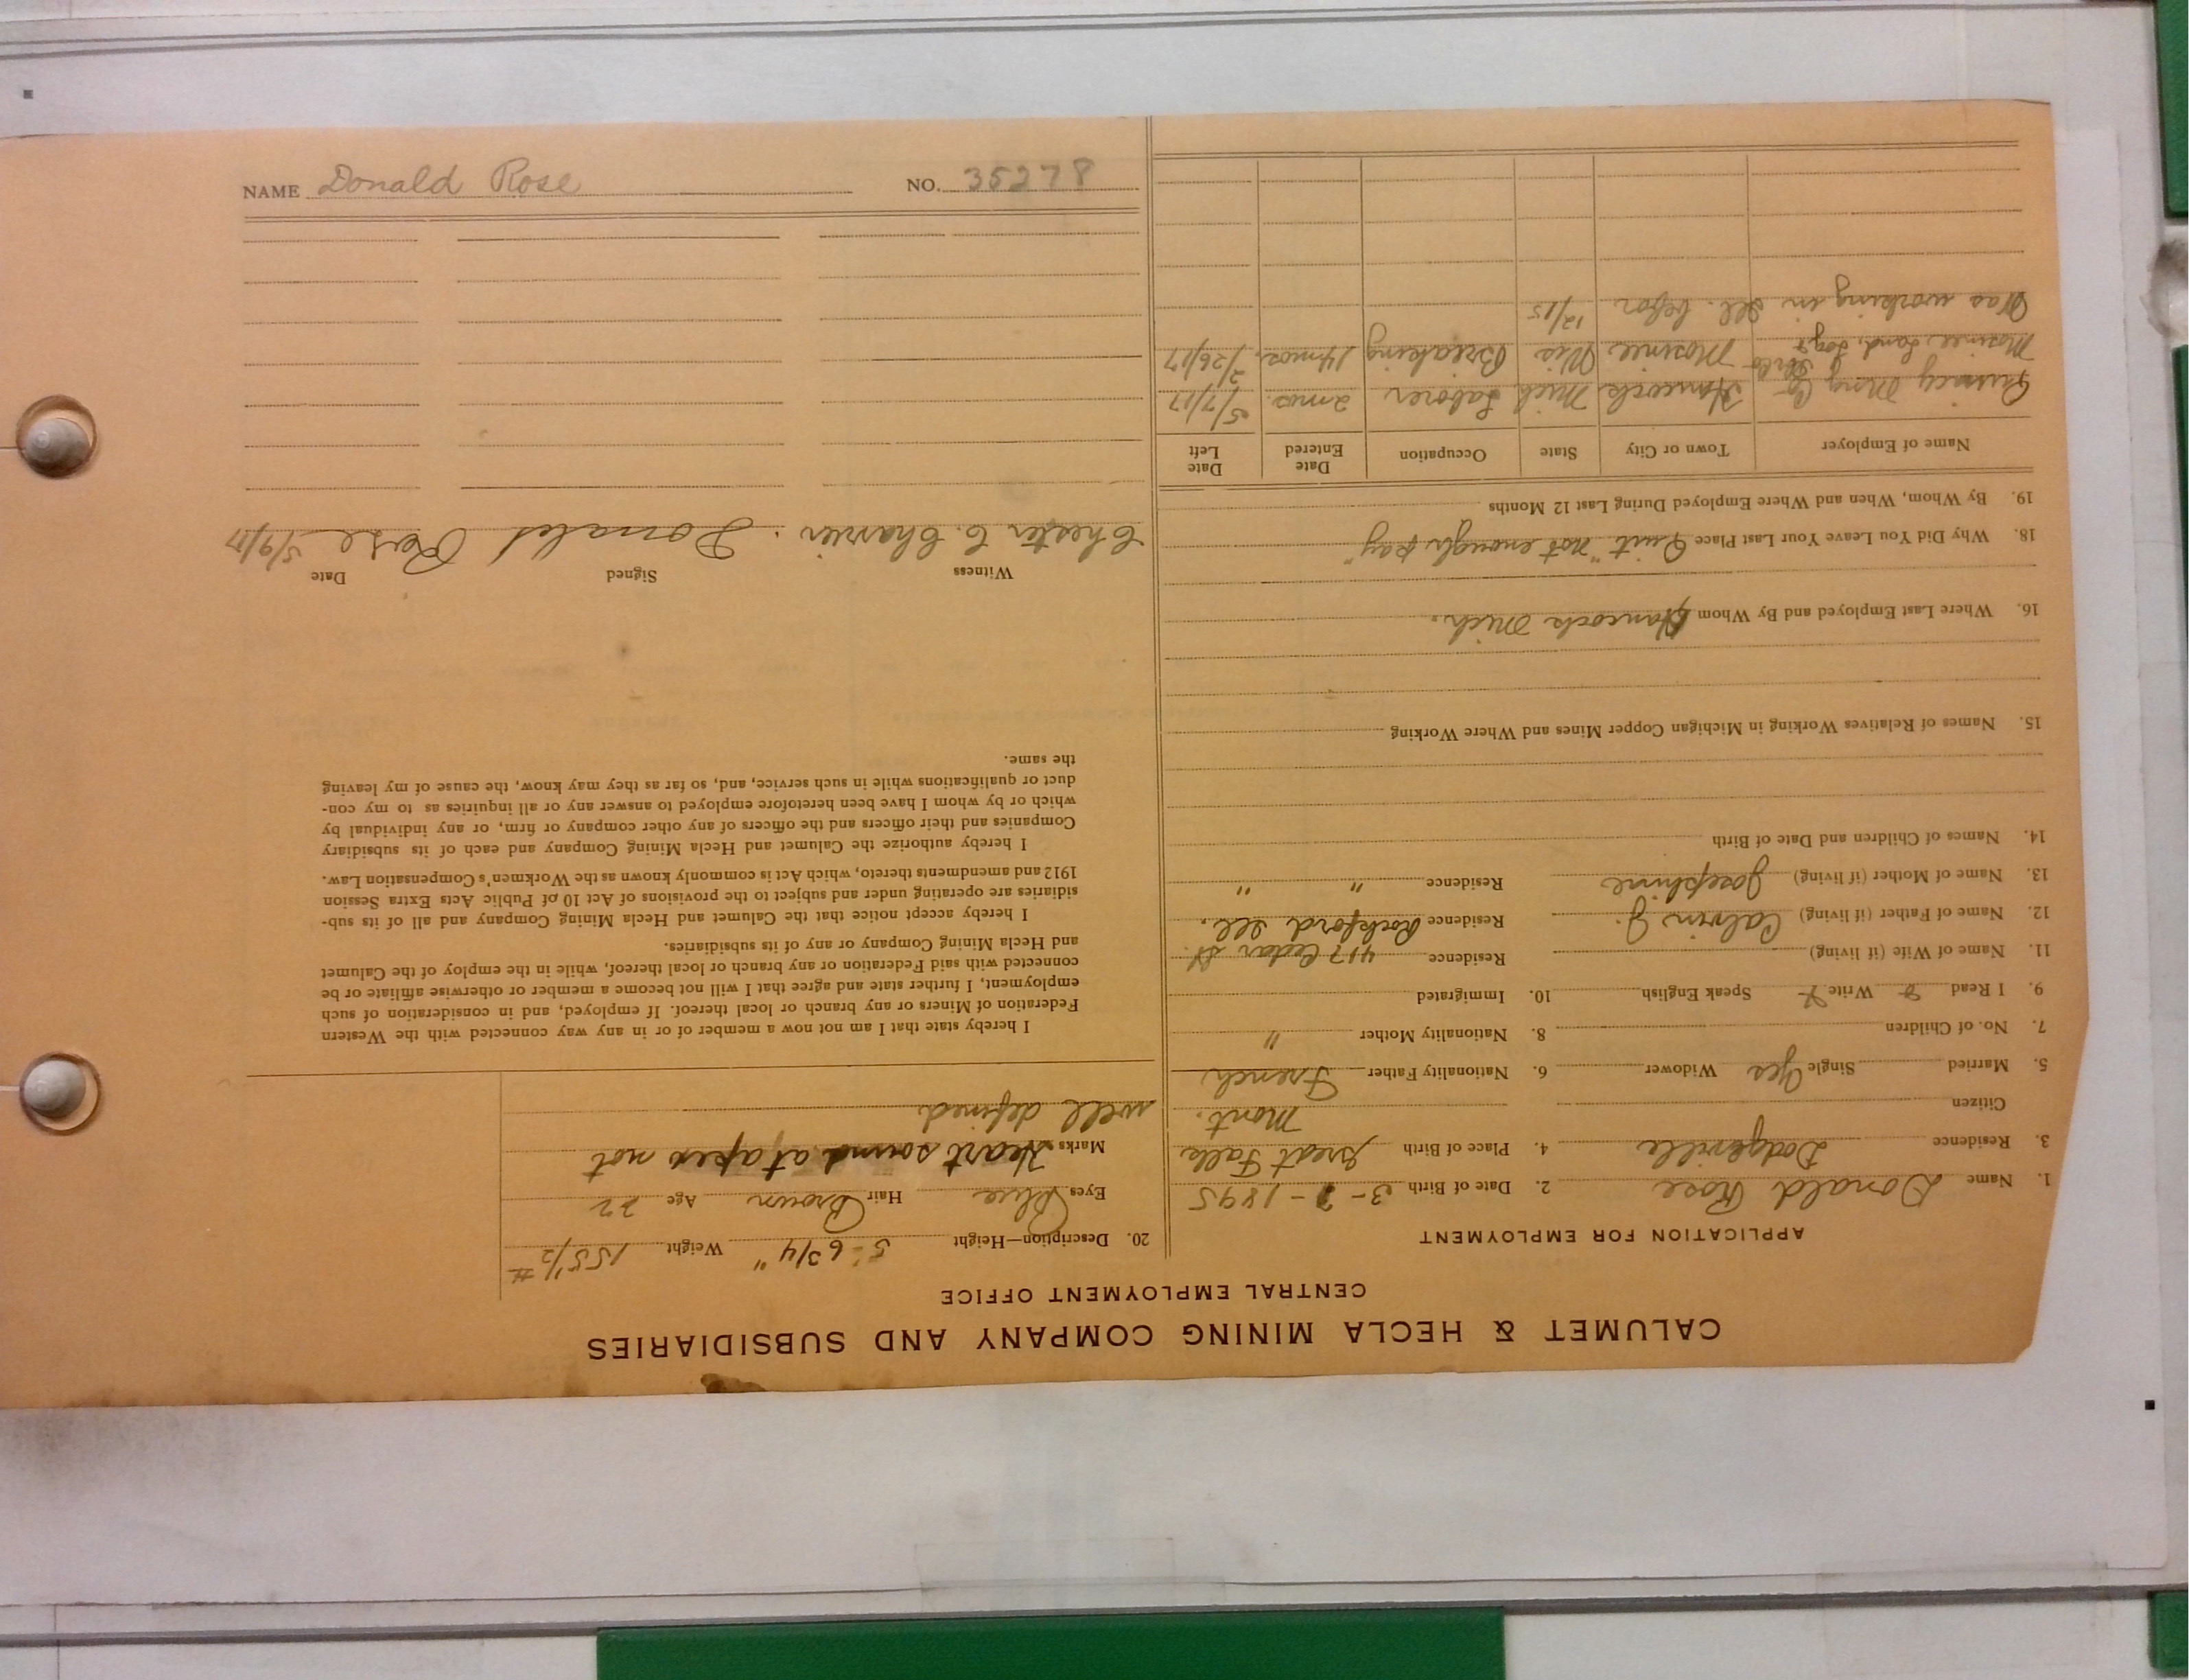 CALUMET & HECLA MINING COMPANY AND SUBSIDIARIES
CENTRAL EMPLOYMENT OFFICE
APPLICATION FOR EMPLOYMENT
1. Name Donald Rose 2. Date of Birth 3-3-1895
3. Residence Dodgeville 4. Place of Birth Great Falls
Citizen Mont.
5. Married Single Yes Widower 6. Nationality Father French
7. No. of Children 8. Nationality Mother "
9. I Read Write Speak English 10. Immigrated
11. Name of Wife (if living) Residence 417 Cedar St.
12. Name of Father (if living) Calvin J. Residence Rockford Ill.
13. Name of Mother (if living) Josephine Residence " "
14. Names of Children and Date of Birth
15. Names of Relatives Working in Michigan Copper Mines and Where Working
16. Where Last Employed and By Whom Hancock Mich.
18. Why Did You Leave Your Last Place Quit "not enough pay"
19. By Whom, When and Where Employed During Last 12 Months
Name of Employer Town or City State Occupation Date Entered Date Left
Quincy Mng Co Hancock Mich Laborer 2 mos. 5/7/17
Mosinee Land, Log & Mosinee Wis Breaking 14 mos. 2/26/17
Was working in Ill. befor 12/15
20. Description—Height 5-6 3/4" Weight 155 1/2 #
Eyes Blue Hair Brown Age 22
Marks Heart sound at apex not
well defined
I hereby state that I am not now a member of or in any way connected with the Western
Federation of Miners or any branch or local thereof. If employed, and in consideration of such
employment, I further state and agree that I will not become a member or otherwise affiliate or be
connected with said Federation or any branch or local thereof, while in the employ of the Calumet
and Hecla Mining Company or any of its subsidiaries.
I hereby accept notice that the Calumet and Hecla Mining Company and all of its sub-
sidiaries are operating under and subject to the provisions of Act 10 of Public Acts Extra Session
1912 and amendments thereto, which Act is commonly known as the Workmen's Compensation Law.
I hereby authorize the Calumet and Hecla Mining Company and each of its subsidiary
Companies and their officers and the officers of any other company or firm, or any individual by
which or by whom I have been heretofore employed to answer any or all inquiries as to my con-
duct or qualifications while in such service, and, so far as they may know, the cause of my leaving
the same.
Witness Signed Date
Chester C. Charrier. Donald Rose 5/9/17
NAME Donald Rose NO. 35278